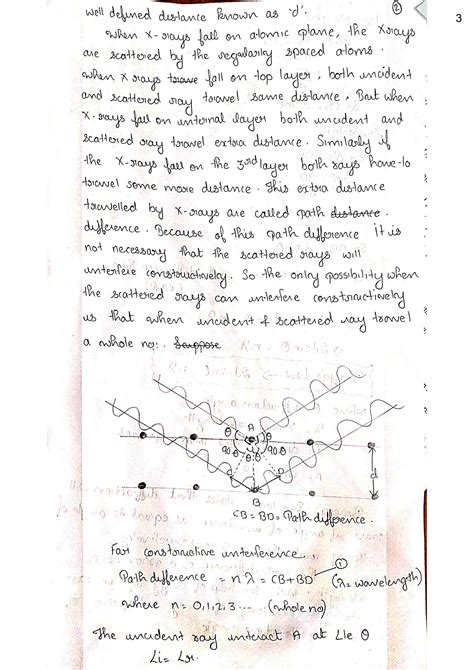 well defined distance known as 'd'.
②
3
When X-rays fall on atomic plane, the Xrays
are scattered by the regularly spaced atoms.
When X rays fall on top layer, both incident
and scattered ray travel same distance. But when
X-rays fall on internal layer both incident and
scattered ray travel extra distance. Similarly if
the X-rays fall on the 3rd layer both rays have-to
travel some more distance. This extra distance
travelled by X-rays are called path distance.
difference. Because of this path difference it is
not necessary that the scattered rays will
interfere constructively. So the only possibility when
the scattered rays can interfere constructively
is that when incident & scattered ray travel
a whole no:. Suppose
A
θ θ
90-θ 90-θ
θ θ
C D
d
B
CB = BD = Path difference.
For constructive interference
①
Path difference = nλ = CB+BD (λ= wavelength)
where n= 0,1,2,3 --- (whole no)
The incident ray interact A at Lle θ
Li= Lr.